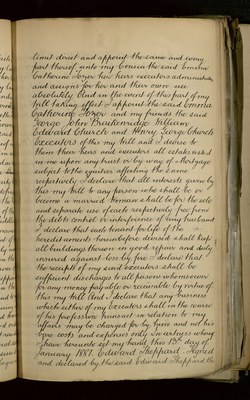 limit devise and appoint the same and every
part thereof unto my Cousin the said Emma
Catherine Hozer her heirs executors administrators
and assigns for her and their own use
absolutely And in the event of this part of my
Will taking effect I appoint the said Emma
Catherine Hozer and my friends the said
George John Braikenridge William
Edward Church and Henry George Church
Executors of this my Will and I devise to
them their heirs and executors all estates vested
in me upon any trust or by way of Mortgage
subject to the equities affecting the same
respectively I declare that all interests given by
this my Will to any person who shall be or
become a married woman shall be for the sole
and separate use of such respectively free from
the debts control or interference of any husband
I declare that each tenant for life of the
hereditaments hereinbefore devised shall keep
all buildings thereon in good repair and duly
insured against loss by fire I declare that
the receipts of my said executors shall be
sufficient discharges to all persons whomsoever
for any money payable or receivable by virtue of
this my Will And I declare that any business
which either of my Executors shall in the course
of his profession transact in relation to my
affairs may be charged for by him and not his
bare costs and expenses only In witness whereof
I have hereunto set my hand this day of
January 1887. Edward Sheppard. Signed
and declared by the said Edward Sheppard the